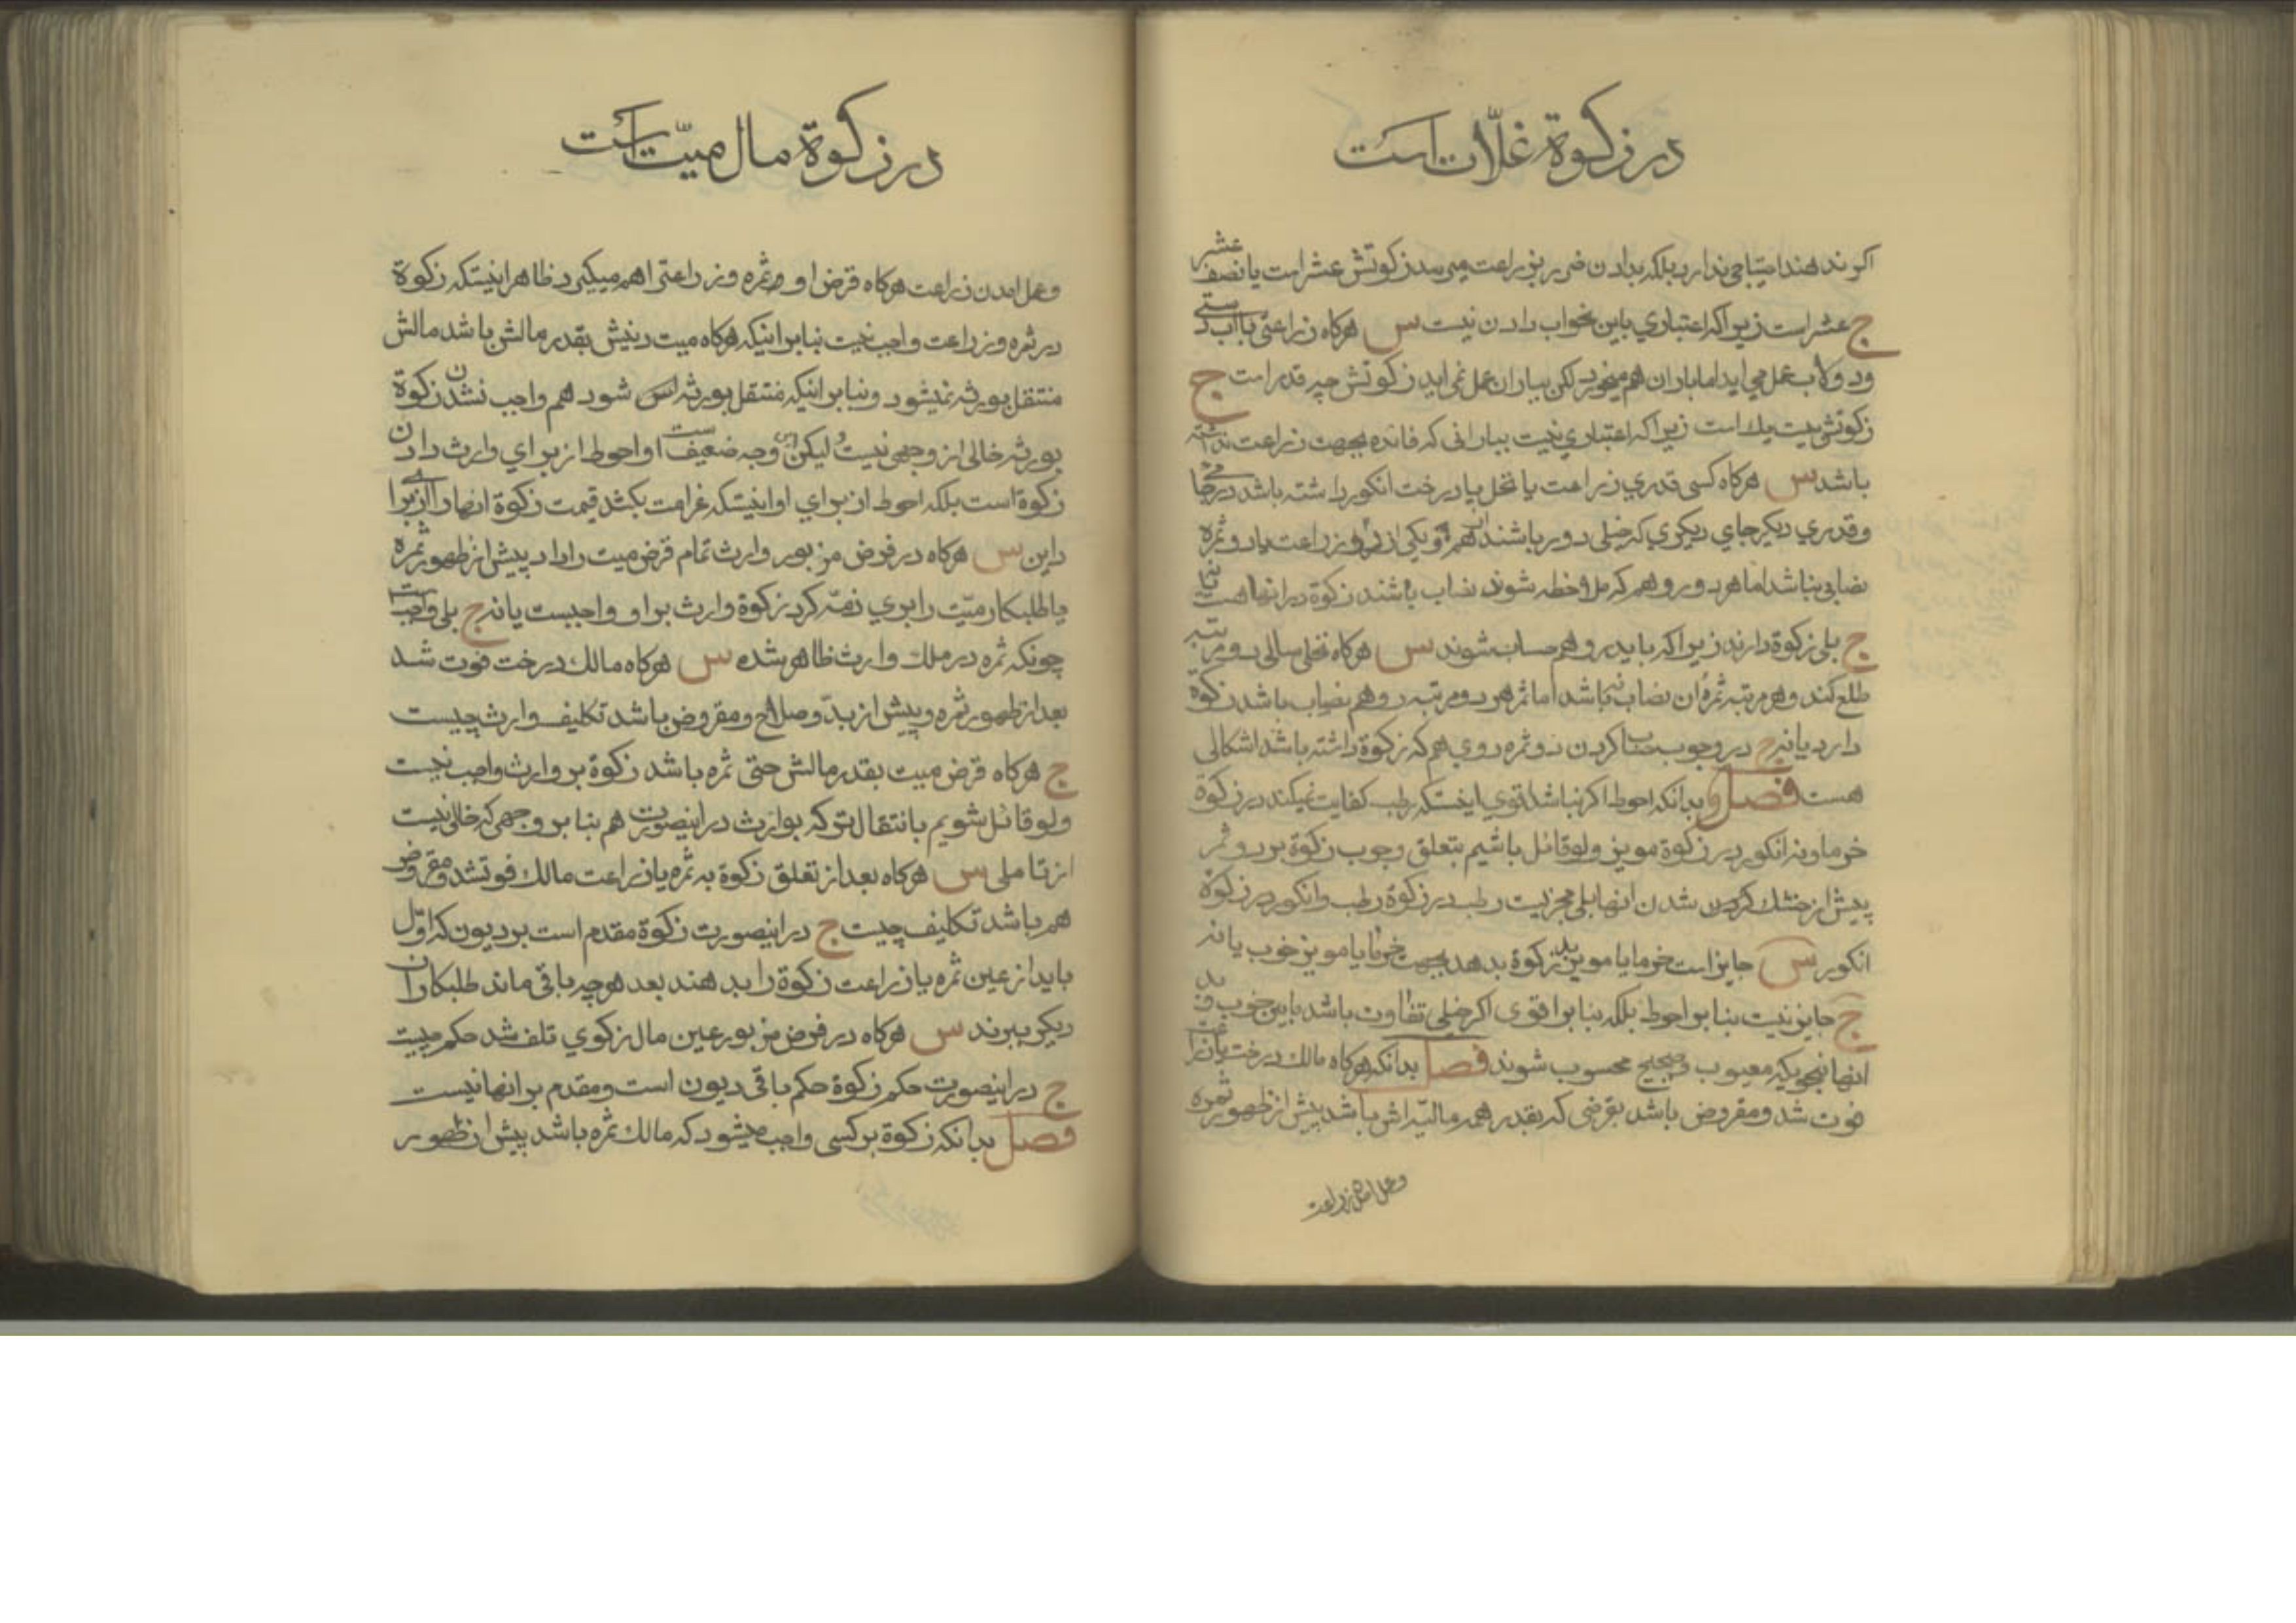 در زکوة غلّات است
اکر ند هند احتیاجی ندارد بلکه بدادن ضرر بزراعت میرسد زکوتش عشر است یا نصف عشر
ج عشر است زیرا که اعتباری باین نحو اب دادن نیست س هرکاه زراعتی با اب دستی
ودولاب عمل می اید اما باران هم میخورد لکن بباران عمل نمی اید زکوتش چه قدر است ج
زکوتش بیست یك است زیرا که اعتباری نیست ببارانی که فائده بجهت زراعت نداشته
باشد س هرکاه کسی قدری زراعت یا نخل یا درخت انکور داشته باشد در جائی
وقدری دیکر جای دیکری که خیلی دور باشند از هم و یکی از زراعت یا دو ثمره
نصابی نباشد اما هر دو رو هم که ملاحظه شوند نصاب باشند زکوة در انها هست یا نه
ج بلی زکوة دارند زیرا که باید رو هم حساب شوند س هرکاه نخلی سالی دو مرتبه
طلع کند وهر مرتبه ثمرهٔ ان نصاب نباشد اما ثمر هر دو مرتبه رو هم نصاب باشد زکوة
دارد یا نه ج در وجوب حساب کردن دو ثمره روی هم که زکوة داشته باشد اشکالی
هست فصل وبدانکه احوط اکر نباشد اقوی اینستکه رطب کفایت نمیکند در زکوة
خرما ونه انکور در زکوة مویز ولو قائل باشیم بتعلق وجوب زکوة بر دو ثمر
پیش از خشك شدن انها بلی مجزیست رطب در زکوة رطب وانکور در زکوة
انکور س جایز است خرما یا مویز بد زکوة بدهد بجهت خرما یا مویز خوب یا نه
ج جایز نیست بنا بر احوط بلکه بنا بر اقوی اکر خیلی تفاوت باشد بابین خوب وبد
انها بنحویکه معیوب وصحیح محسوب شوند فصل بدانکه هرکاه مالك درخت یا زراعت
فوت شد ومقروض باشد بقرضی که بقدر همه مالیّه اش باشد پیش از ظهور ثمره
وعمل امدن زراعت
در زکوة مال میّت است
وعمل امدن زراعت هرکاه قرض او ثمره وزراعتی را هم میکیرد ظاهر اینستکه زکوة
در ثمره وزراعت واجب نیست بنا بر اینکه هرکاه میت دینش بقدر مالش باشد مالش
منتقل بورثه نمیشود وبنا بر اینکه منتقل بورثه اش شود هم واجب نشدن زکوة
بورثه خالی از وجهی نیست ولیکن این وجه ضعیف است واحوط از برای وارث دادن
زکوة است بلکه احوط از برای او اینستکه غرامت بکشد قیمت زکوة انها را از برای
داین س هرکاه در فرض مزبور وارث تمام قرض میت را داد پیش از ظهور ثمره
یا طلبکار میّت را بری ذمّه کرد زکوة وارث بر او واجبست یا نه ج بلی واجب است
چونکه ثمره در ملك وارث ظاهر شده س هرکاه مالك درخت فوت شد
بعد از ظهور ثمره وپیش از بدّو صلاح ومقروض باشد تکلیف وارث چیست
ج هرکاه قرض میت بقدر مالش حتی ثمره باشد زکوة بر وارث واجب نیست
ولو قائل شویم بانتقال ترکه بوارث در اینصورت هم بنا بر وجهی که خالی نیست
از تاملی س هرکاه بعد از تعلق زکوة به ثمره یا زراعت مالك فوتشد ومقروض
هم باشد تکلیف چیست ج در اینصورت زکوة مقدم است بر دیون که اوّل
باید از عین ثمره یا زراعت زکوة را بدهند بعد هر چه باقی ماند طلبکاران
دیکر ببرند س هرکاه در فرض مزبور عین مال زکوی تلف شد حکم چیست
ج در اینصورت حکم زکوة حکم باقی دیون است ومقدم بر انها نیست
فصل بدانکه زکوة بر کسی واجب میشود که مالك ثمره باشد پیش از ظهور